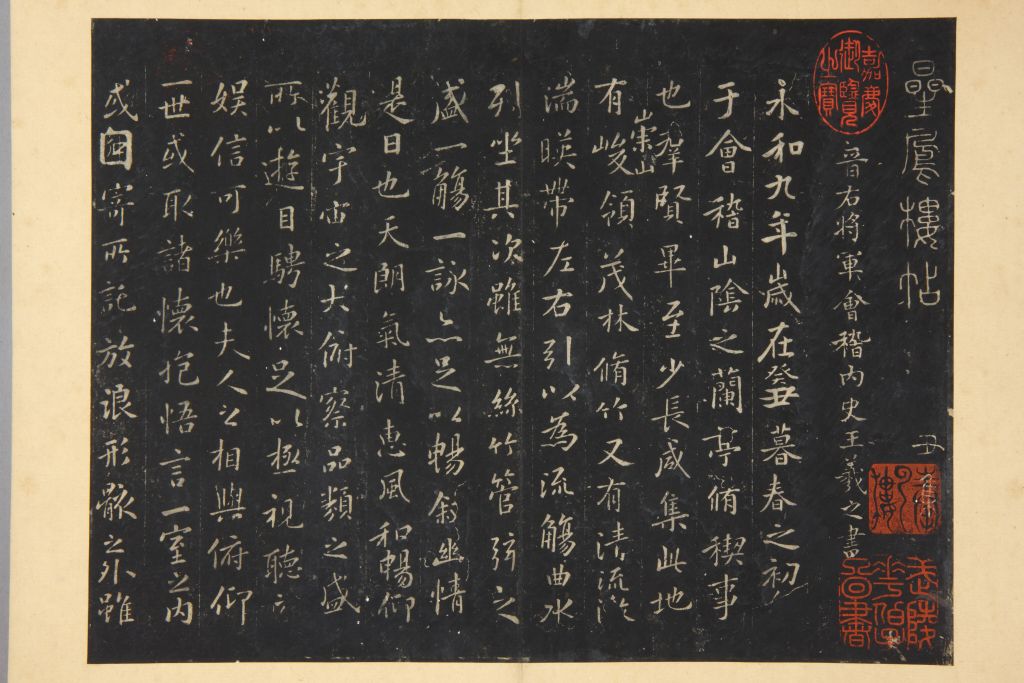 曐鳳樓帖
丑
嘉慶御覽之寶
晉右将軍會稽內史王羲之書
永和九年歲在癸丑暮春之初
于會稽山陰之蘭亭脩稧事
也羣賢畢至少長咸集此地
崇山
有峻領茂林脩竹又有清流激
湍暎帶左右引以為流觴曲水
列坐其次雖無絲竹管弦之
盛一觴一詠亦足以暢敘幽情
是日也天朗氣清惠風和暢仰
觀宇宙之大俯察品類之盛
所以遊目騁懷足以極視聽之
娛信可樂也夫人之相與俯仰
一世或取諸懷抱悟言一室之內
或因寄所託放浪形骸之外雖